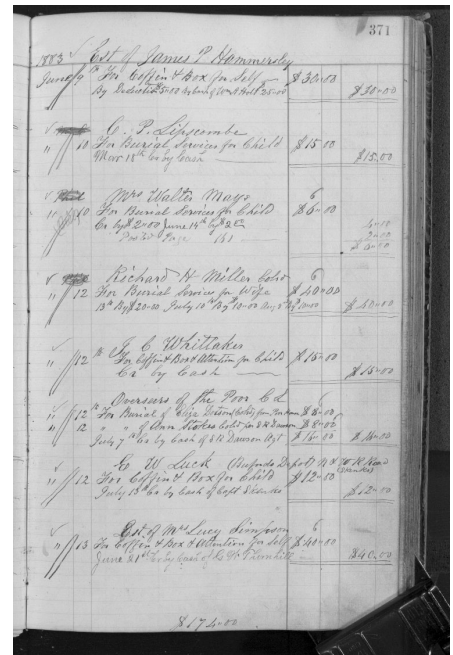 371
1883 Est of James P Hammersley
June 9th For Coffin & Box for Self $30=00
By Deduction 5=00 by Cash of Wm H Holt 25=00 $30=00
C. P. Lipscombe
" 10 For Burial Services for Child $15 00
18th Cr by Cash $15.00
Mrs Walter Mays 6
" 10 For Burial Services for Child $6=00
Cr by $2=00 June 14th by $2 4=00
Page 161 2=00
Richard H Miller Cold 6
" 12 For Burial Service for Wife $40=00
13th By $20=00 July 10th By 10=00 Aug By 10=00 $40=00
C Whittaker
" 12th For Coffin & Box & Attention for Child $15=00
Cr by Cash $15=00
Overseers of the Poor Cd 6
" 12th For Burial of Eliza $8=00
" 12 " " of Ann Stokes Cold for S R Dawson $8=00
July 7th Cr by Cash of S R Dawson Agt $16=00 $16=00
C W Luck (Bufords Depot N & W R Road
" 12 For Coffin & Box for Child $12=00
July 13th Cr by Cash of Capt $12=00
Est of Mrs Lucy Simpson 6
" 13 For Coffin & Box & Attention for Self $40=00
June 21st Cr by Cash of Thornhill $40.00
$174=00